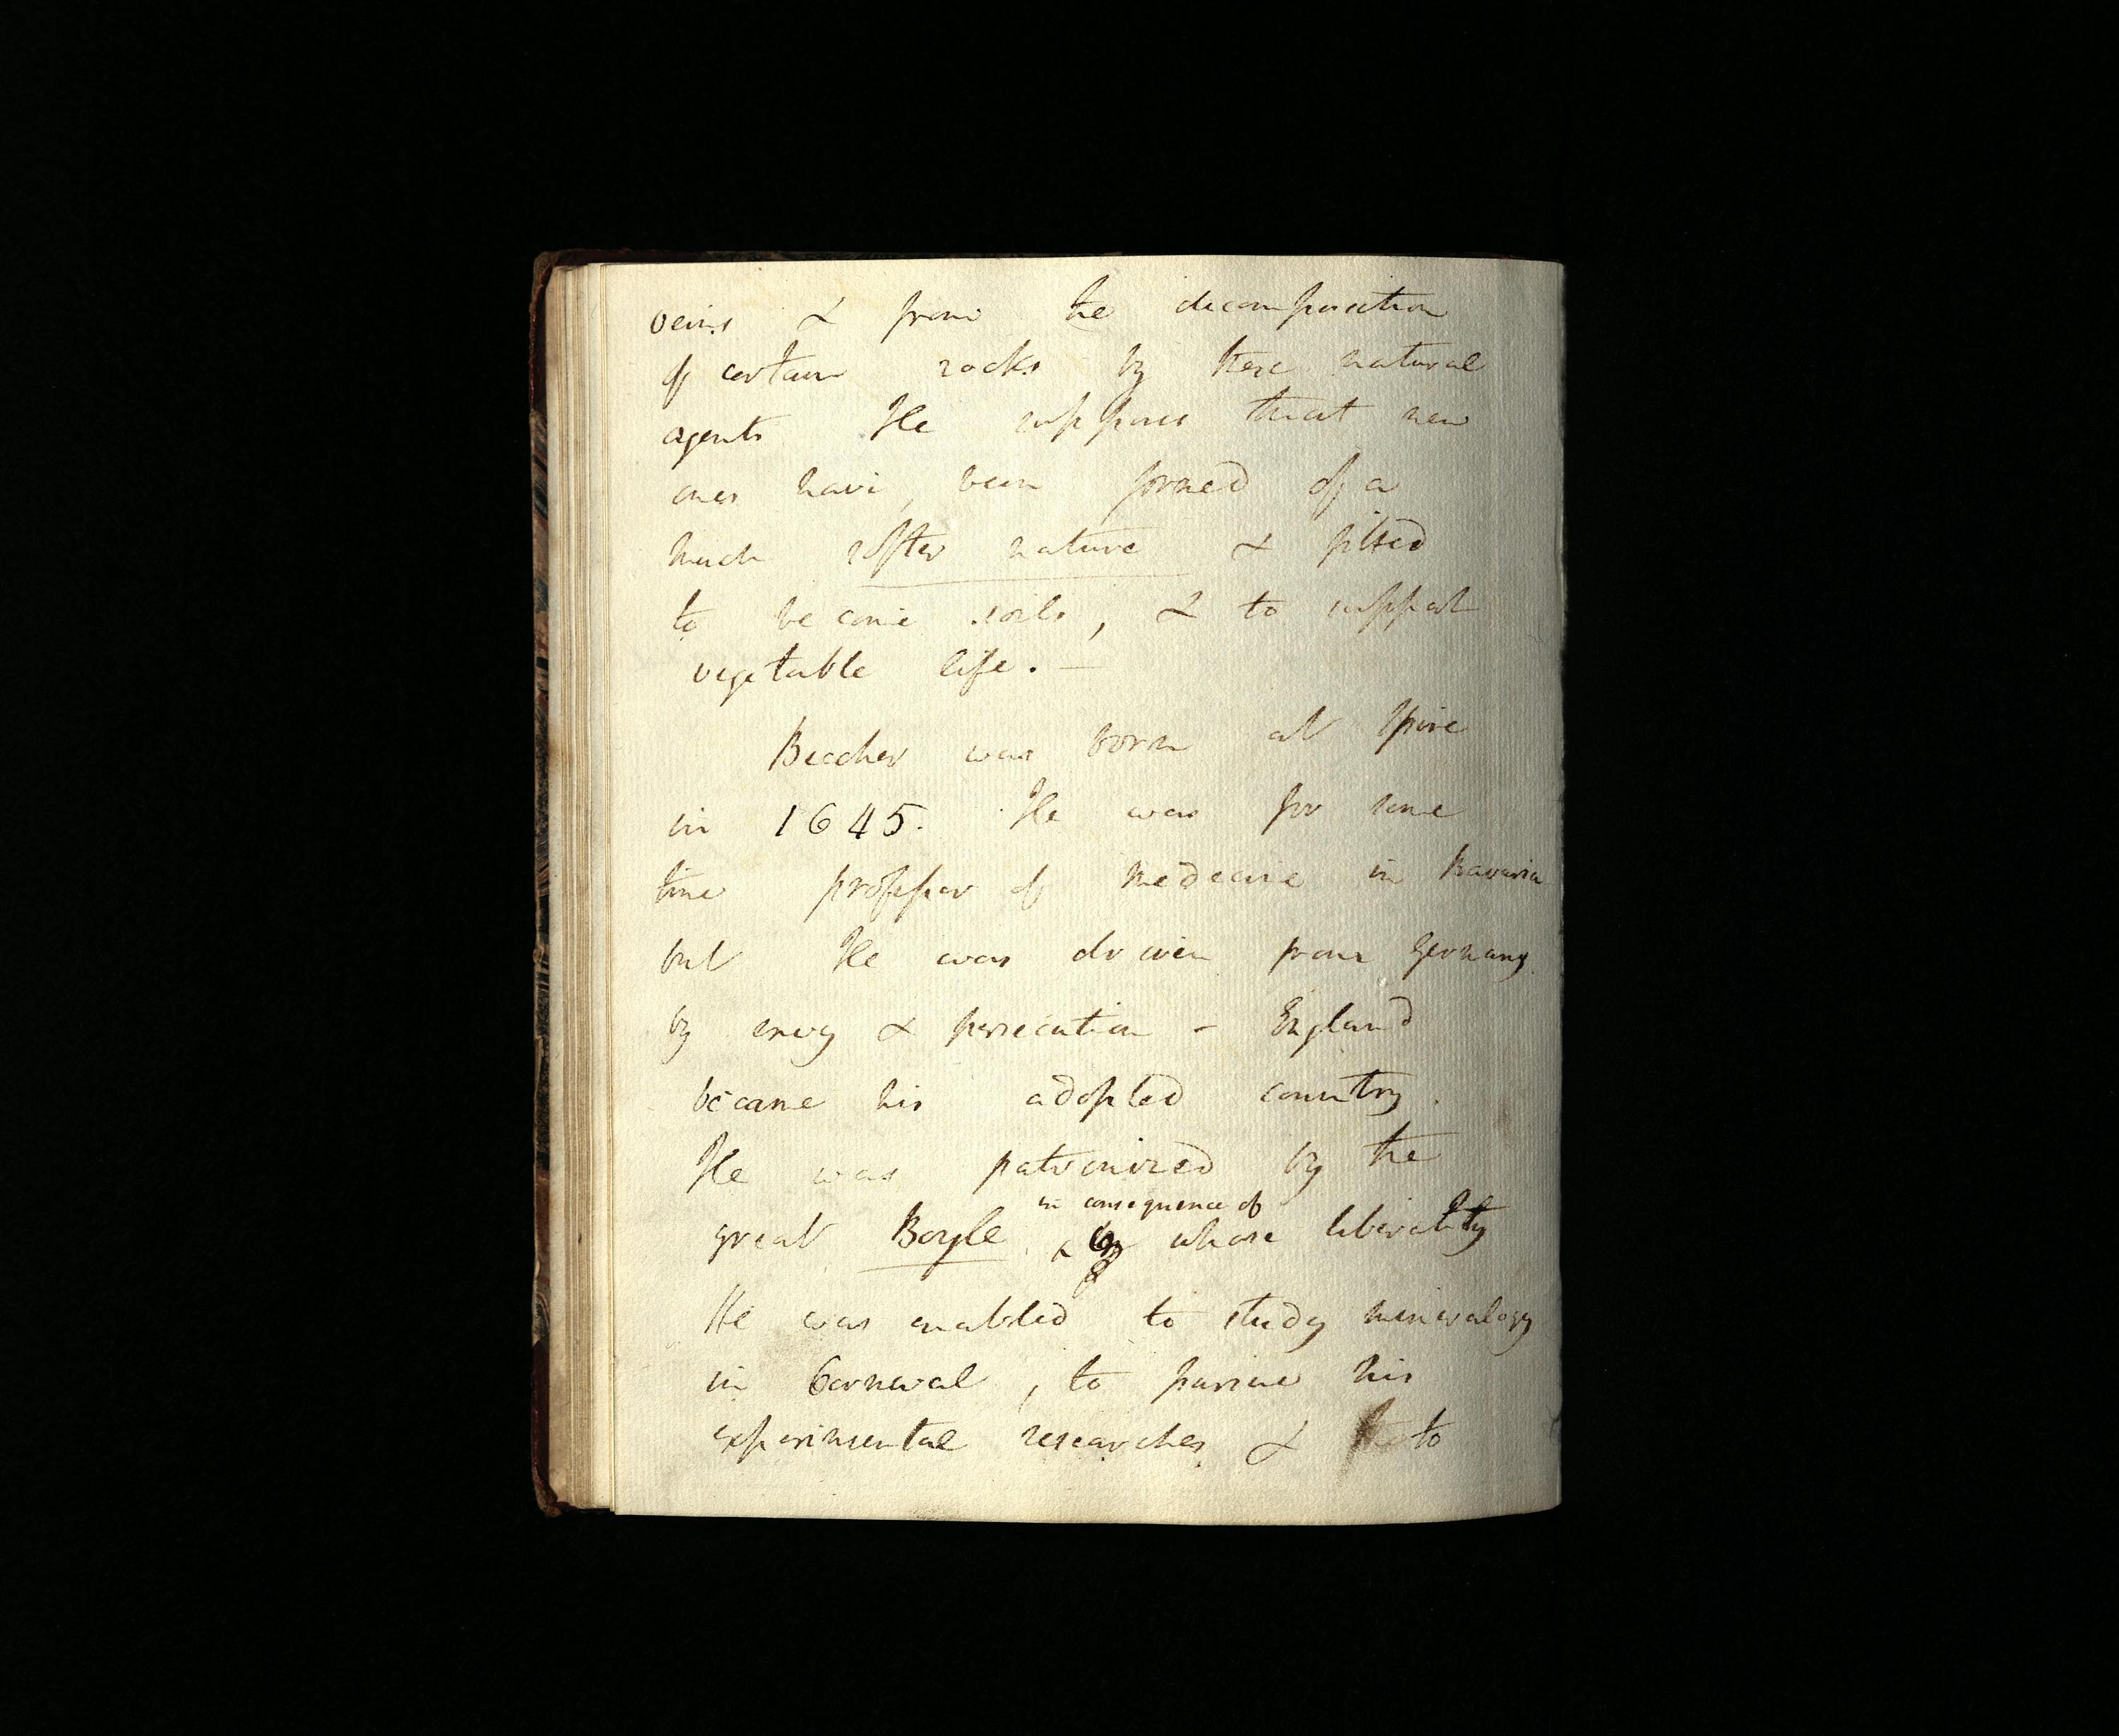 veins & from the decomposition
of certain rocks by these natural
agents He supposes that new
ones have, been formed of a
much softer nature & fitted
to become soils, & to support
vegetable life. —
Beccher was born at Spire
in 1645. He was for some
time professor of medecine in Bavaria
but He was driven from Germany
by envy & persecution - England
became his adopted country.
He was patronized by the
in consequence of
great Boyle & by whose liberality
He was enabled to study mineralogy
in Cornwal, to pursue his
experimental researches & to